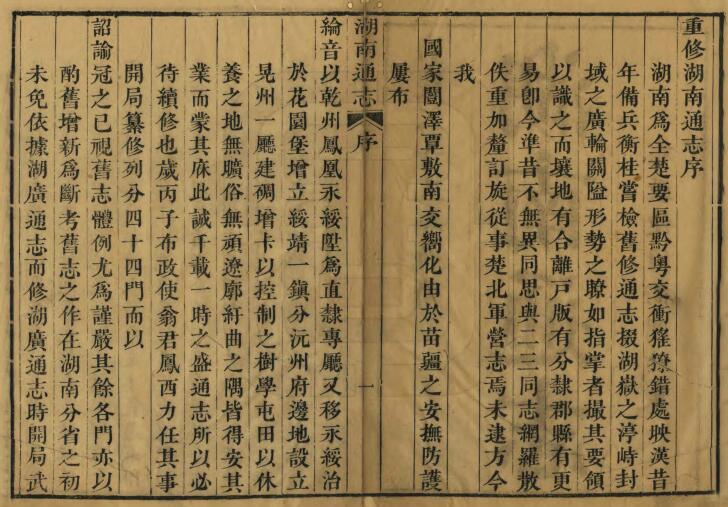 重修湖南通志序
湖南為全楚要區黔粵交衝猺獠錯處映漢昔
年備兵衡桂嘗檢舊修通志掇湖嶽之渟峙封
域之廣輪關隘形勢之瞭如指掌者撮其要領
以識之而壤地有合離戸版有分隸郡縣有更
易卽今準昔不無異同思與二三同志網羅散
佚重加釐訂旋從事楚北軍營志焉未逮方今
我
國家闓澤覃敷南交嚮化由於苗疆之安撫防護
屢布
湖南通志 序 一
綸音以乾州鳳凰永綏陞為直隸專廳又移永綏治
於花園堡增立綏靖一鎮分沅州府邊地設立
晃州一廳建碉增卡以控制之樹學屯田以休
養之地無曠俗無頑遼廓紆曲之隅皆得安其
業而蒙其庥此誠千載一時之盛通志所以必
待續修也歲丙子布政使翁君鳳西力任其事
開局纂修列分四十四門而以
詔諭冠之已視舊志體例尤為謹嚴其餘各門亦以
酌舊增新為斷考舊志之作在湖南分省之初
未免依據湖廣通志而修湖廣通志時開局武